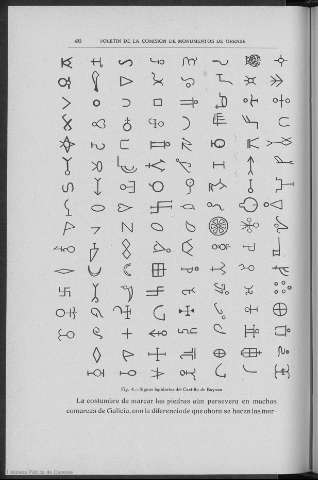 402 BOLETIN DE LA COMISION DE MONUMENTOS DE ORENSE
Fig. 4.—Signos lapidarios del Castillo de
La costumbre de marcar las piedras aún persevera en muchas
comarcas de Galicia, con la diferencia de que ahora se hacen las mar-